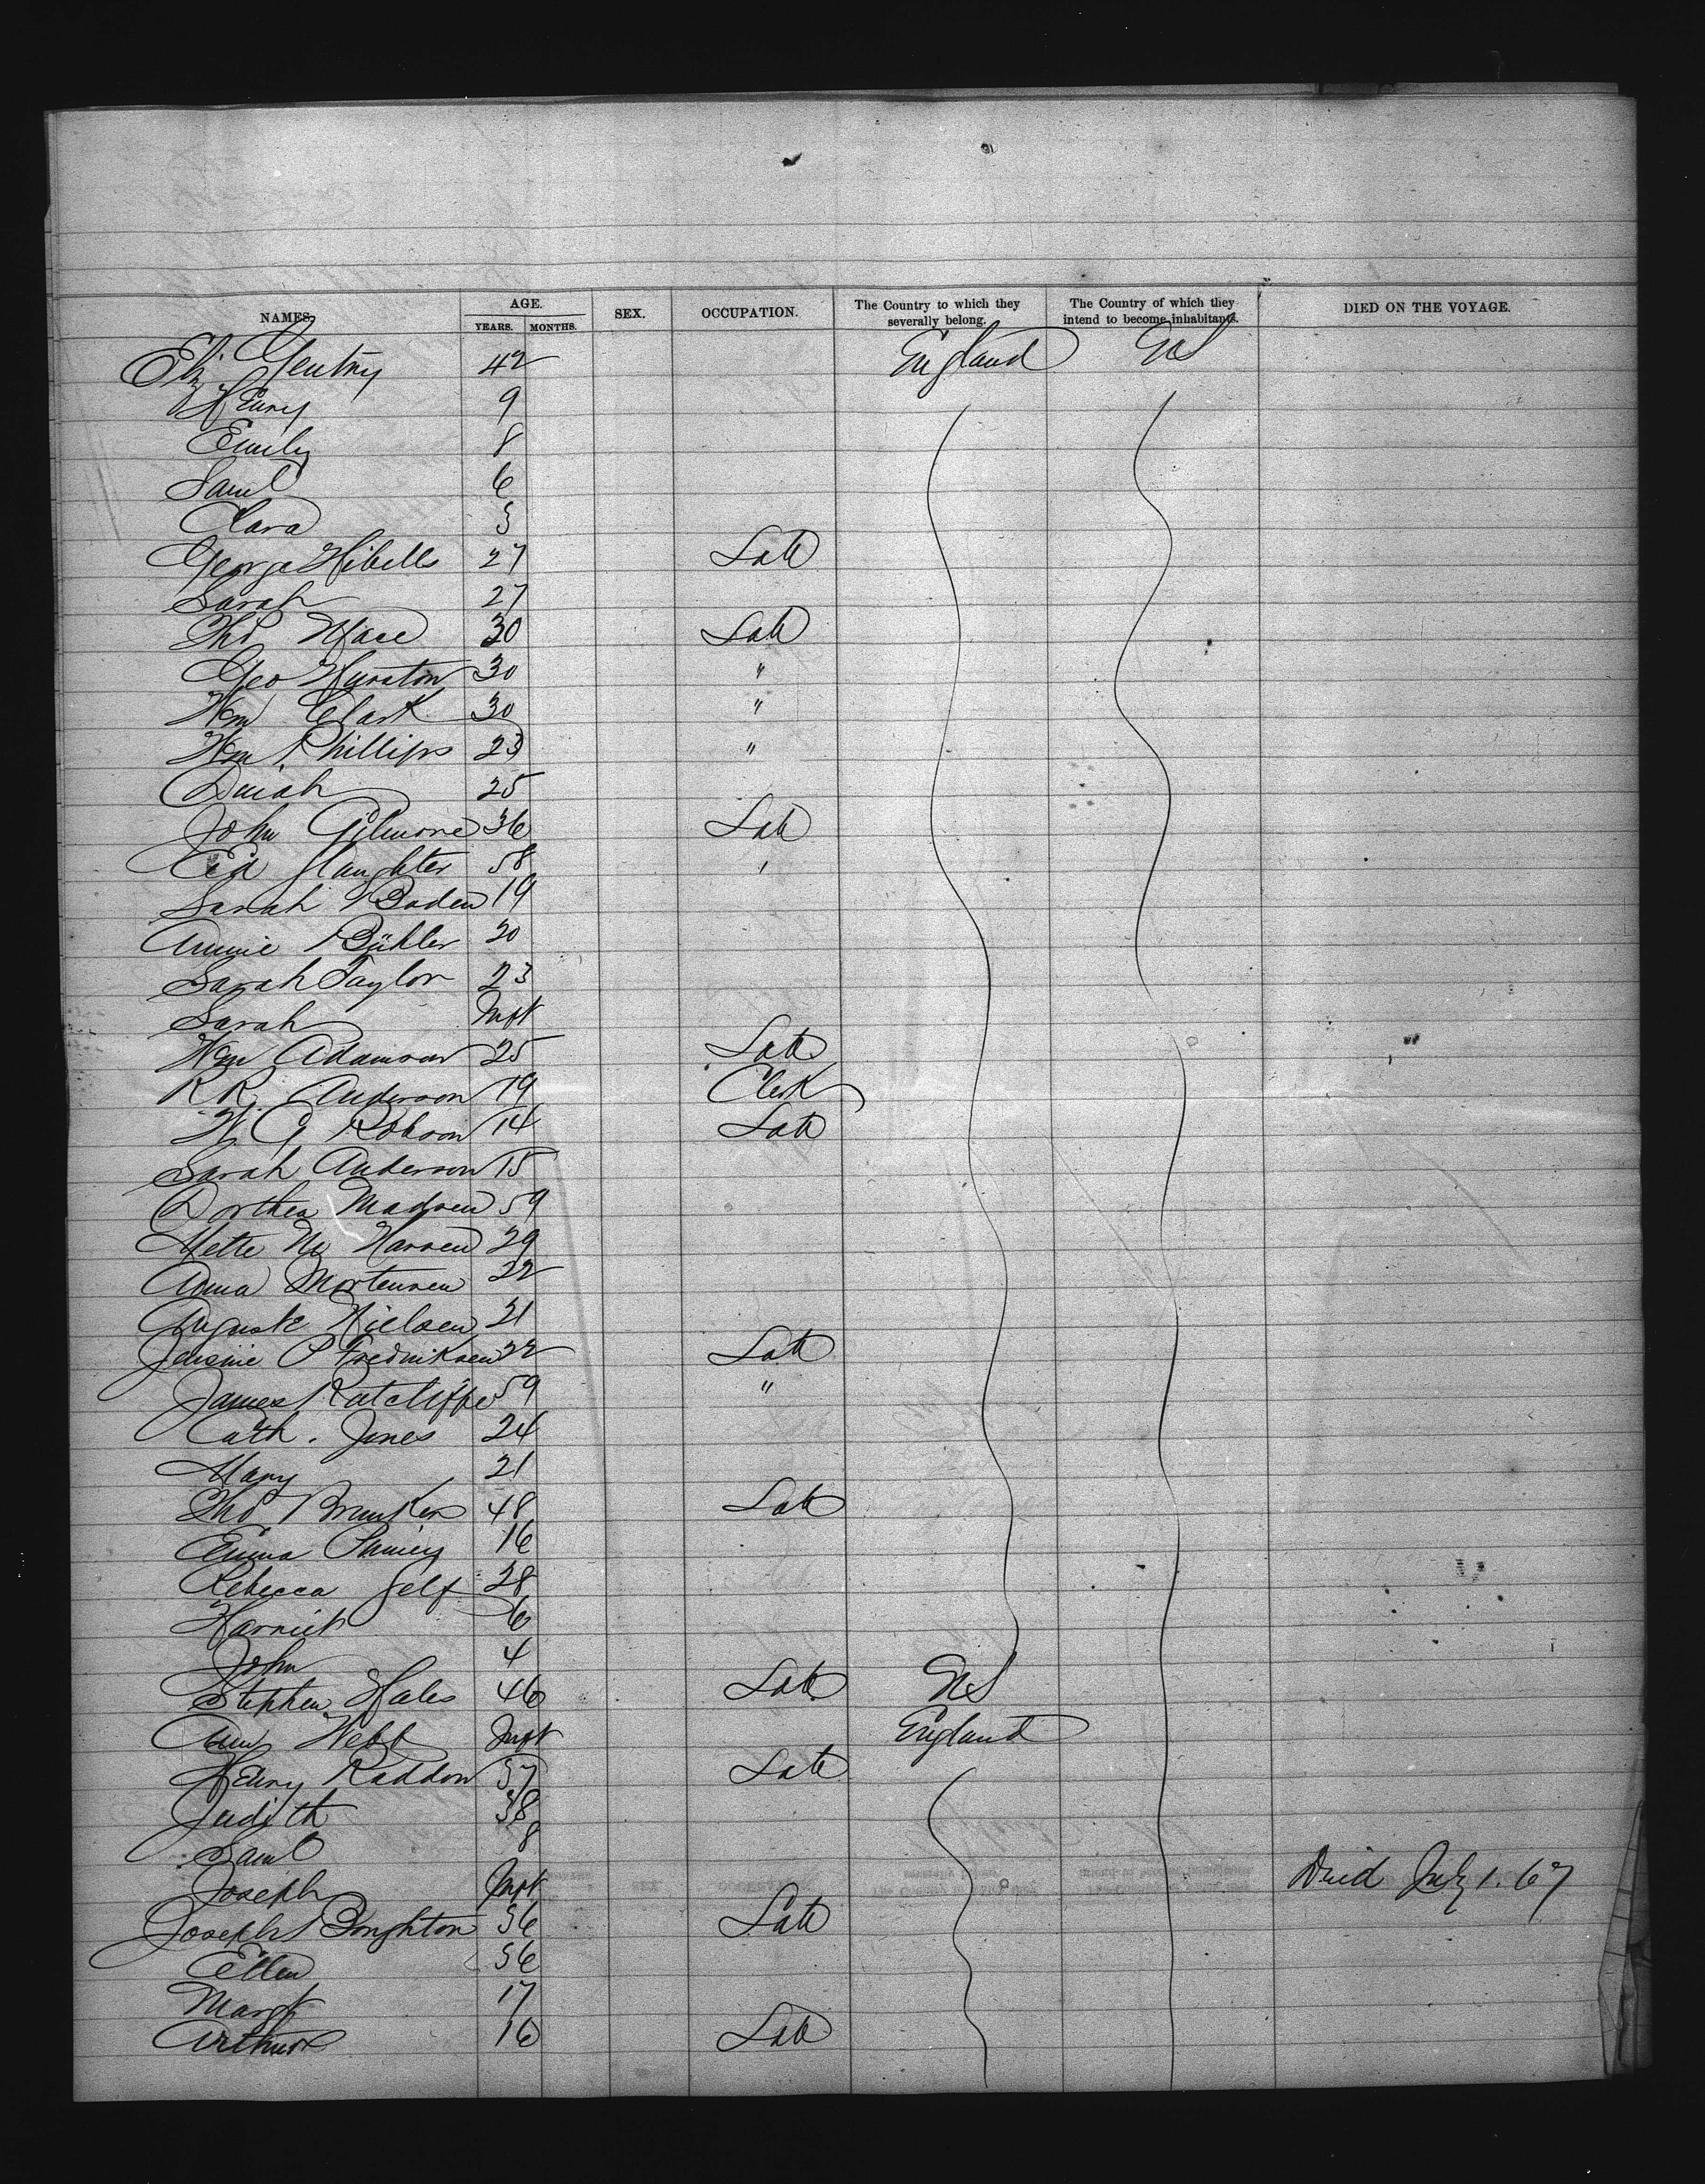 NAMES. AGE. YEARS. MONTHS. SEX. OCCUPATION. The Country to which they severally belong. The Country of which they intend to become inhabitants. DIED ON THE VOYAGE.
Eliz. Gentry 42 England US
Henry 9
Emily 8
Saml 6
Clara 3
George Hibells 27 Lab
Sarah 27
Tho Mace 30 Lab
Geo Hurston 30 "
Wm Clark 30 "
Wm Phillips 23 "
Dinah 25
John Gilmore 36 Lab
Ed Slaughter 58 '
Sarah Boden 19
Annie Bühler 20
Sarah Taylor 23
Sarah Inft
Wm Adamson 25 Lab
R R Anderson 19 Clerk
W. G Robson 14 Lab
Sarah Anderson 15
Dorthea Madsen 59
Mette M Hansen 29
Anna Mortensen 22
Auguste Nielsen 21
Jensine P Fredriksen 22 Lab
James Ratcliffe 59 "
Cath. Jones 24
Mary 21
Tho Brunker 48 Lab
Emma 16
Rebecca Self 28
Harriet 6
John 4
Stephen Hales 46 Lab US
Ann Webb Inft England
Henry Raddon 37 Lab
Judith 38
Saml 8
Joseph Inft Died July 1. 67
Joseph Boughton 56 Lab
Ellen 56
Margt 17
Arthur 16 Lab